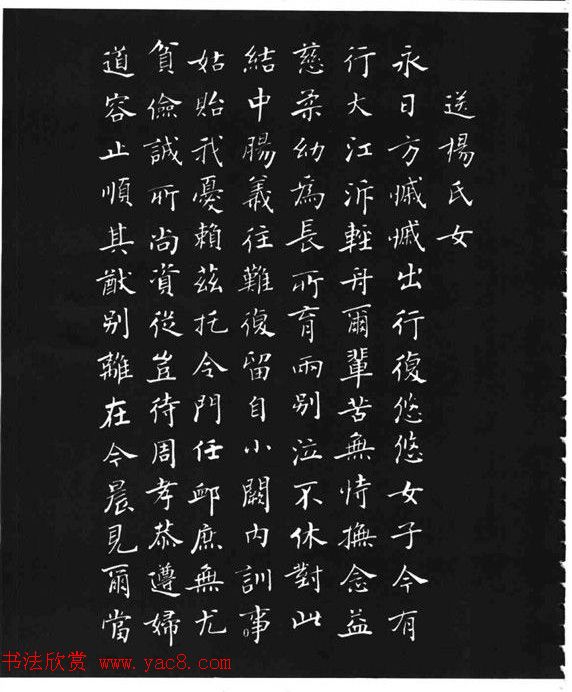 送楊氏女
永日方慼慼出行復悠悠女子今有
行大江泝輕舟爾輩苦無恃撫念益
慈柔幼爲長所育兩别泣不休對此
結中腸義往難復留自小闕内訓事
姑貽我憂賴茲托令門任卹庶無尤
貧儉誠所尚資從豈待周孝恭遵婦
道容止順其猷别離在今晨見爾當
书法欣赏 www.yac8.com